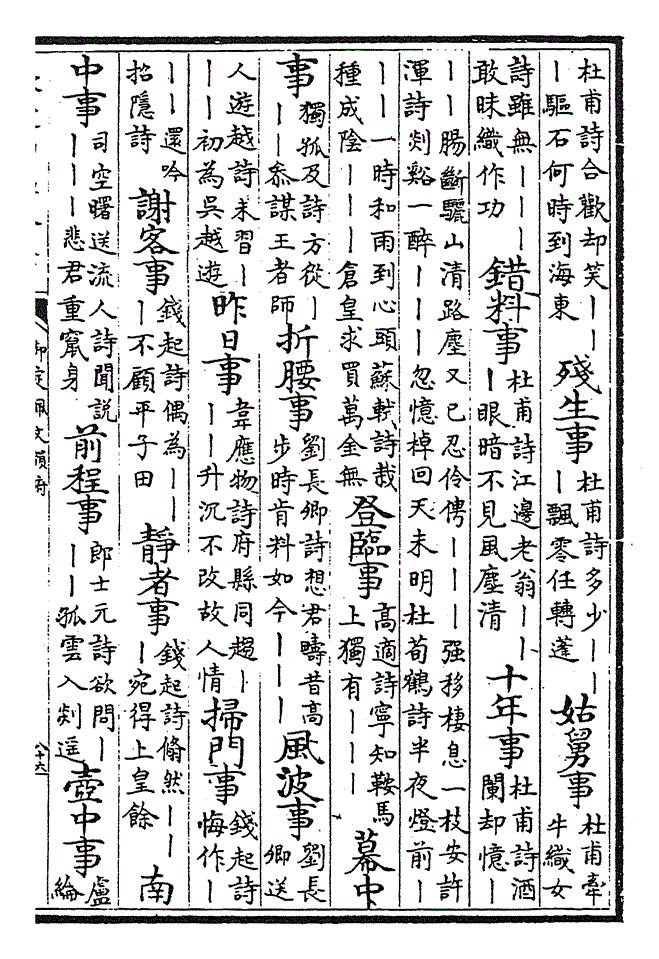 杜甫詩合歡却笑｜｜
｜驅石何時到海東
殘生事
杜甫詩多少｜｜
｜飄零任轉蓬
姑舅事
杜甫牽
牛織女
詩雖無｜｜｜
敢昧織作功
錯料事
杜甫詩江邊老翁｜｜
｜眼暗不見風塵清
十年事
杜甫詩酒
闌却憶｜
｜｜腸斷驪山清路塵又已忍伶俜｜｜｜强移棲息一枝安許
渾詩剡谿一醉｜｜｜忽憶棹回天未明杜荀鶴詩半夜燈前｜
｜｜一時和雨到心頭蘇軾詩栽
種成陰｜｜｜倉皇求買萬金無
登臨事
高適詩寧知鞍馬
上獨有｜｜｜
幕中
事
獨孤及詩方從｜
｜｜叅謀王者師
折腰事
劉長卿詩想君疇昔高
步時肯料如今｜｜｜
風波事
劉長
卿送
人遊越詩未習｜
｜｜初為吳越遊
昨日事
韋應物詩府縣同趨｜
｜｜升沉不改故人情
掃門事
錢起詩
悔作｜
｜｜還吟
招隱詩
謝客事
錢起詩偶為｜｜
｜不顧平子田
靜者事
錢起詩翛然｜｜
｜宛得上皇餘
南
中事
司空曙送流人詩聞説
｜｜｜悲君重竄身
前程事
郎士元詩欲問｜
｜｜孤雲入剡遥
壺中事
盧
綸
御定佩文韻府